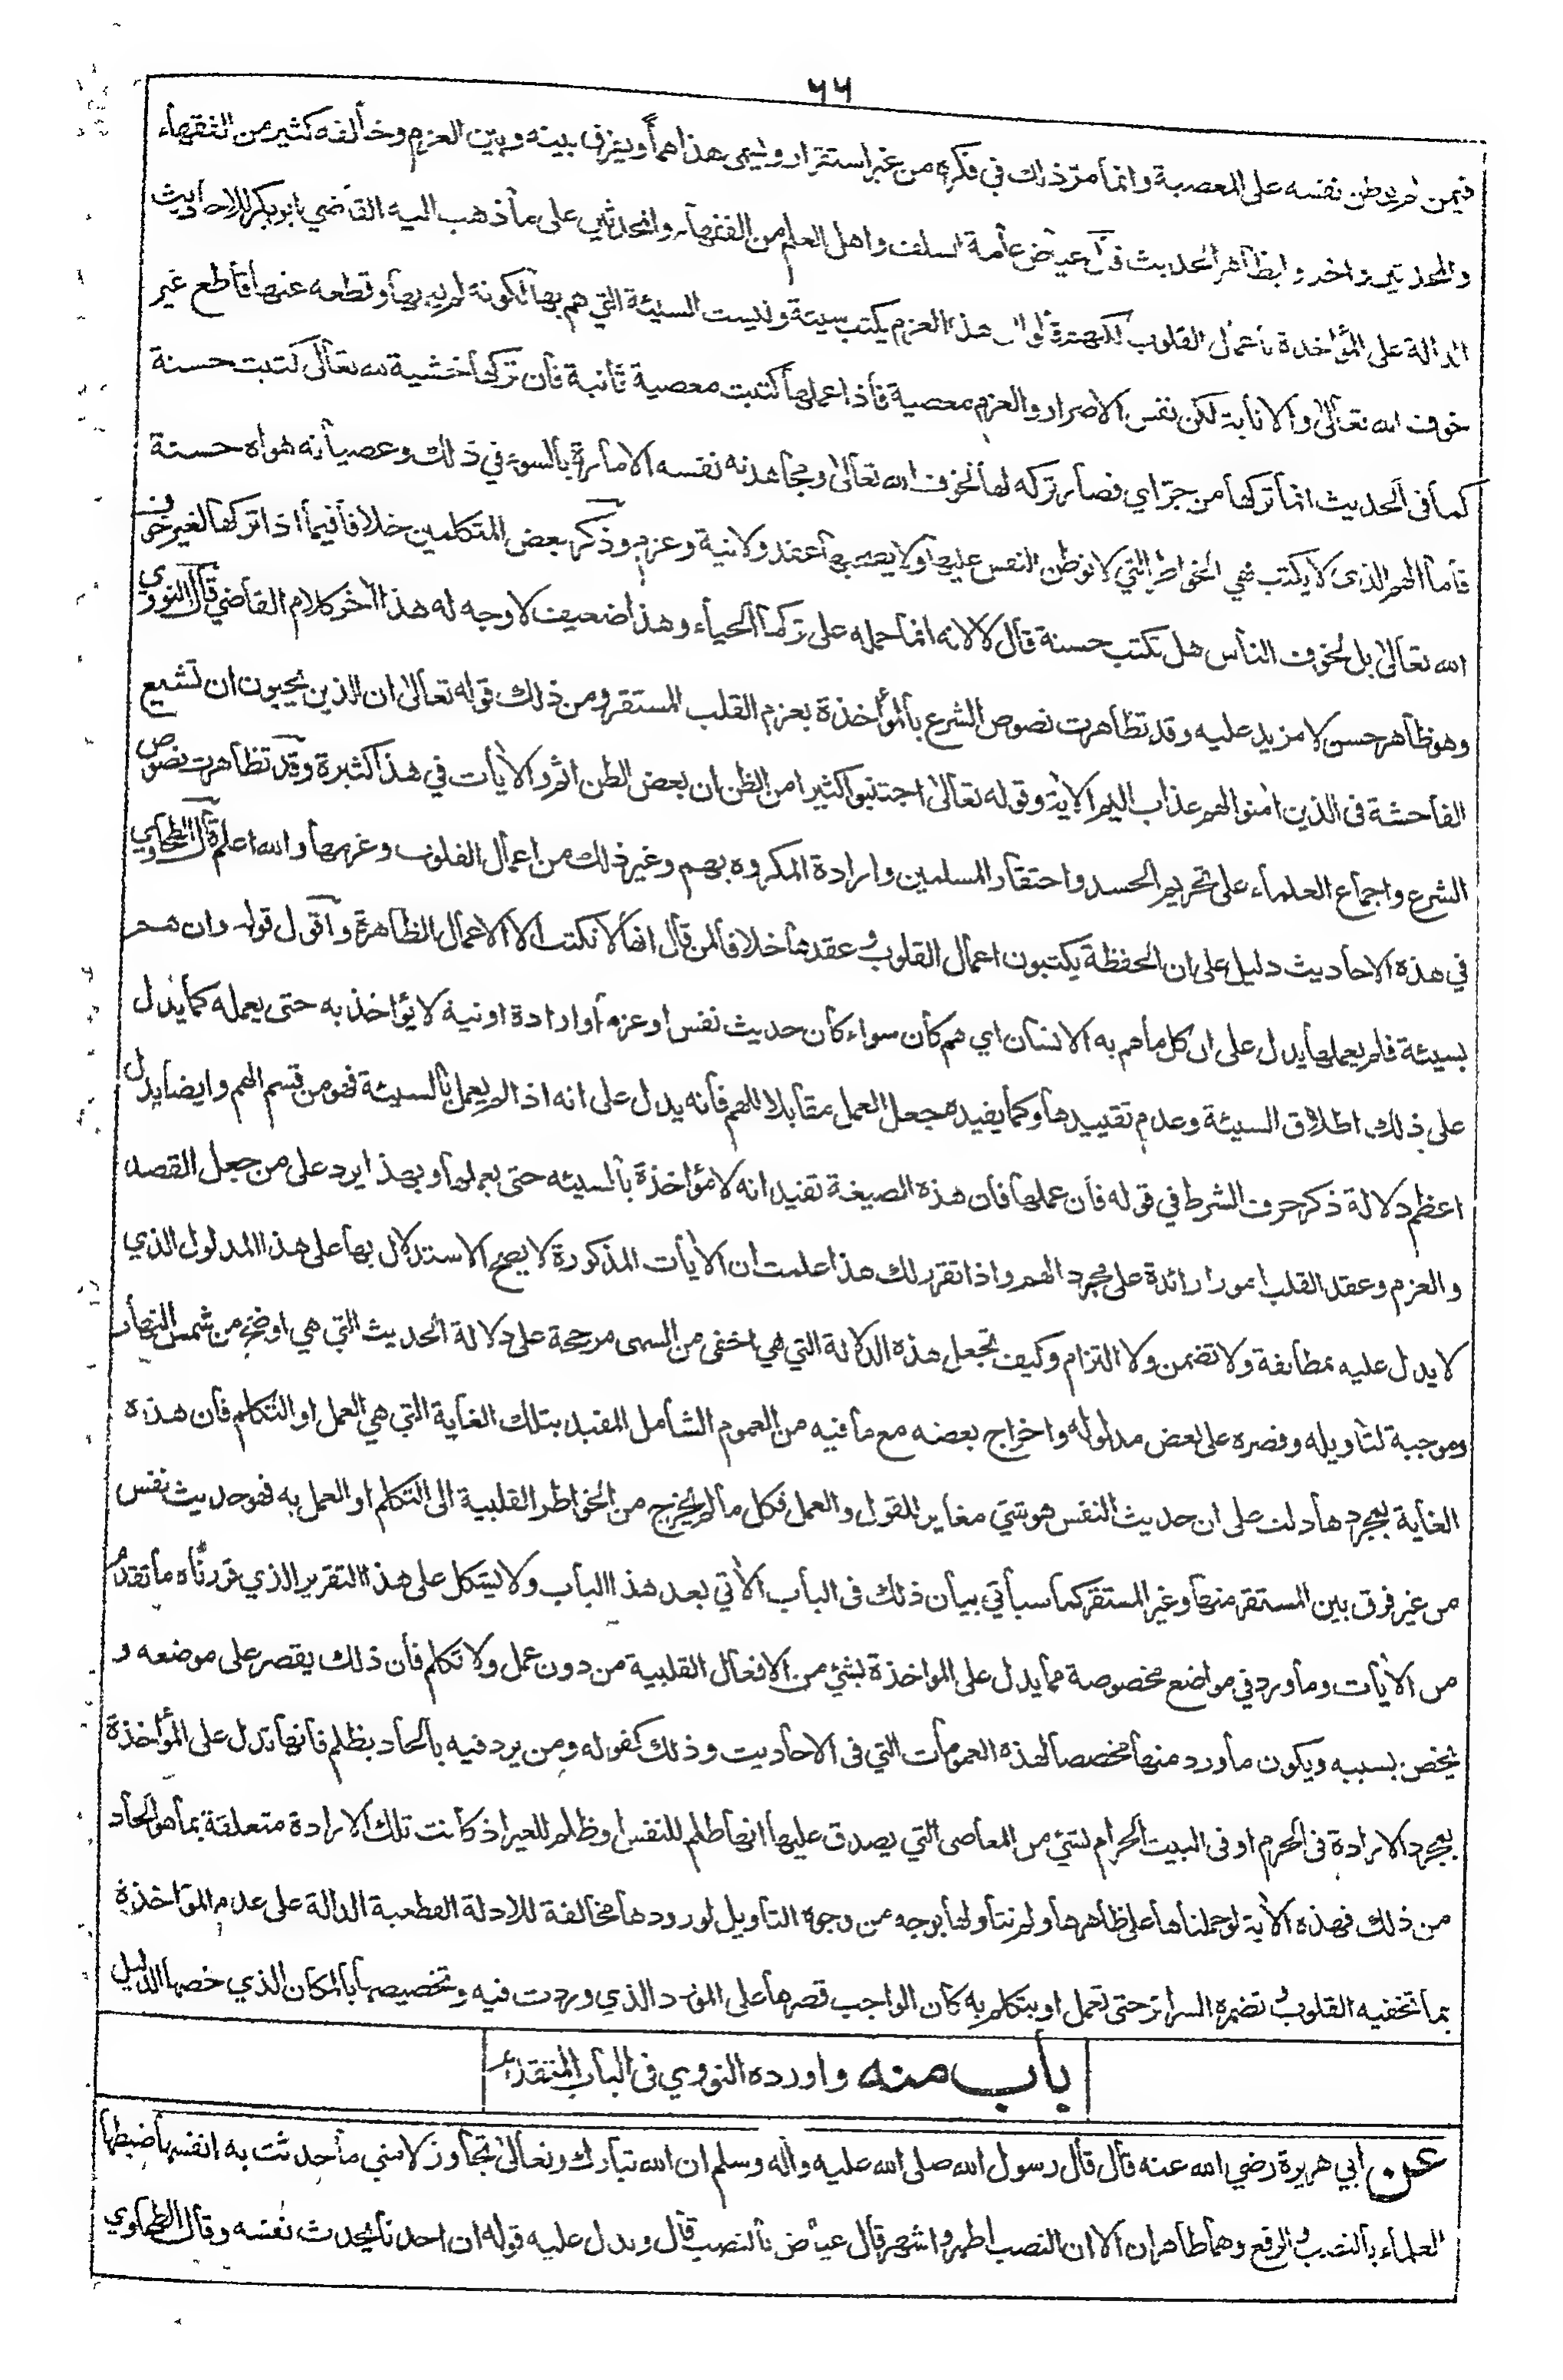 ٦٦
فيمن لم يوطن نفسه على المعصية وانما مرّ ذلك في فكره من غير استقرار وليسمى هذا هماً ويفرق بينه وبين العزم وخالفه كثير من الفقهاء
والمحدثين واخذوا بظاهر الحديث قال عياض عامة السلف واهل العلم من الفقهاء والمحدثين على ما ذهب اليه القاضي ابو بكر للاحاديث
الدالة على المؤاخذة باعمال القلوب لكنهم قالوا ان هذا العزم يكتب سيئة وليست السيئة التي هم بها لكونه لم يعملها وقطعه عنها قاطع غير
خوف الله تعالى والانابة لكن نفس الاصرار والعزم معصية فاذا عملها كتبت معصية ثانية فان تركها خشية لله تعالى كتبت حسنة
كما في الحديث انما تركها من جرّاي فصار تركه لها لخوف الله تعالى ومجاهدته نفسه الامارة بالسوء في ذلك وعصيانه هواه حسنة
فاما الهم الذي لا يكتب فهي الخواطر التي لا توطن النفس عليها ولا يصحبها عقد ولا نية وعزم وذكر بعض المتكلمين خلافا فيما اذا تركها لغير خوف
الله تعالى بل لخوف الناس هل تكتب حسنة قال لا لانه انما حمله على تركها الحياء وهذا ضعيف لا وجه له هذا اخر كلام القاضي قال النووي
وهو ظاهر حسن لا مزيد عليه وقد تظاهرت نصوص الشرع بالمؤاخذة بعزم القلب المستقر ومن ذلك قوله تعالى ان الذين يحبون ان تشيع
الفاحشة في الذين امنوا لهم عذاب اليم الاية وقوله تعالى اجتنبوا كثيرا من الظن ان بعض الظن اثم والايات في هذا كثيرة وقد تظاهرت نصوص
الشرع واجماع العلماء على تحريم الحسد واحتقار المسلمين وارادة المكروه بهم وغير ذلك من اعمال القلوب وعزمها والله اعلم قال الطحاوي
في هذه الاحاديث دليل على ان الحفظة يكتبون اعمال القلوب وعقدها خلافا لمن قال انها لا تكتب الا الاعمال الظاهرة واقول قوله وان هم
بسيئة فلم يعملها يدل على ان كل ما هم به الانسان اي هم كان سواء كان حديث نفس او عزم أو ارادة او نية لا يؤاخذ به حتى يعمله كما يدل
على ذلك اطلاق السيئة وعدم تقييدها وكما يفيده جعل العمل مقابلا للهم فانه يدل على انه اذا لم يعمل بالسيئة فهو من قسم الهم وايضا يدل
اعظم دلالة ذكر حرف الشرط في قوله فان عملها فان هذه الصيغة تفيد انه لا مؤاخذة بالسيئه حتى يعملها وبهذا يرد على من جعل القصد
والعزم وعقد القلب امورا زائدة على مجرد الهم واذا تقرر لك هذا علمت ان الايات المذكورة لا يصح الاستدلال بها على هذا المدلول الذي
لا يدل عليه بمطابقة ولا تضمن ولا التزام وكيف تجعل هذه الدلالة التي هي اخفى من السهى مرجحة على دلالة الحديث التي هي اوضح من شمس النهار
وموجبة لتأويله وقصره على بعض مدلوله واخراج بعضه مع ما فيه من العموم الشامل المقيد بتلك الغاية التي هي العمل او التكلم فان هذه
الغاية بمجردها دلت على ان حديث النفس هو شئ مغاير للقول والعمل فكل ما لم يخرج من الخواطر القلبية الى التكلم او العمل به فهو حديث نفس
من غير فرق بين المستقر منها وغير المستقر كما سيأتي بيان ذلك في الباب الآتي بعد هذا الباب ولا يشكل على هذا التقرير الذي قررناه ما تقدم
من الآيات وما ورد في مواضع مخصوصة مما يدل على المواخذة بشئ من الافعال القلبية من دون عمل ولا تكلم فان ذلك يقصر على موضعه و
يخص بسببه ويكون ما ورد منها مخصصا لهذه العمومات التي في الاحاديث وذلك كقوله ومن يرد فيه بالحاد بظلم فانها تدل على المؤاخذة
بمجرد الارادة في الحرم او في البيت الحرام لشئ من المعاصي التي يصدق عليها انها ظلم للنفس او ظلم للغير اذ كانت تلك الارادة متعلقة بما هو الحاد
من ذلك فهذه الآية لو حملناها على ظاهرها ولم نتأولها بوجه من وجوه التأويل لورودها مخالفة للادلة القطعية الدالة على عدم المؤاخذة
بما تخفيه القلوب وتضمره السرائر حتى تعمل او يتكلم به كان الواجب قصرها على المورد الذي وردت فيه وتخصيصها بالمكان الذي خصها الدليل
باب منه واورده النووي في الباب المتقدم
عن ابي هريرة رضي الله عنه قال قال رسول الله صلى الله عليه وآله وسلم ان الله تبارك وتعالى تجاوز لامتي ما حدثت به انفسها ضبطها
العلماء بالنصب والرفع وهما ظاهران الا ان النصب اظهر واشهر قال عياض بالنصب قال ويدل عليه قوله ان احدنا يحدث نفسه وقال الطحاوي